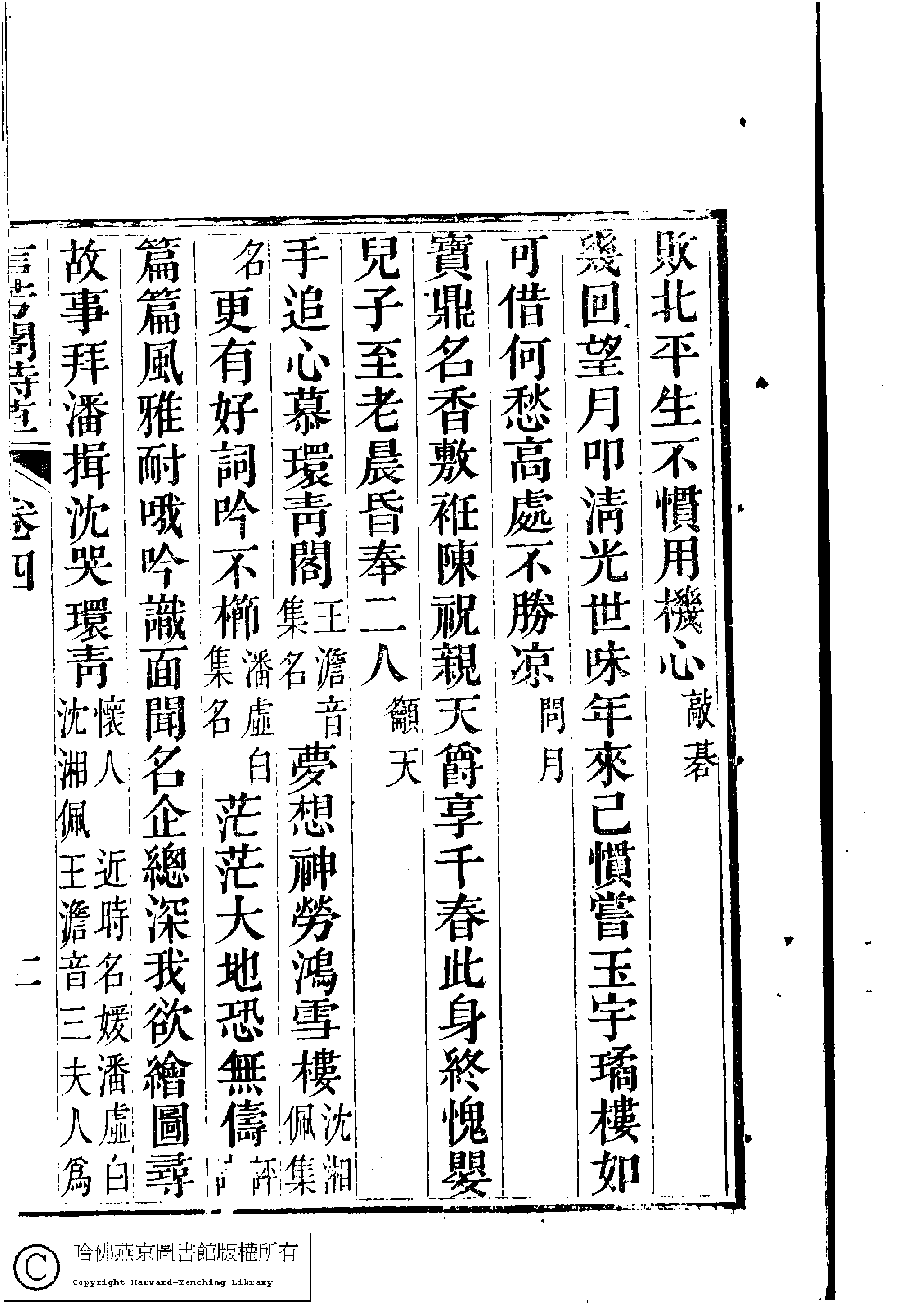 敗北平生不慣用機心敲碁
幾回望月叩淸光世味年來已慣嘗玉宇璚樓如
可借何愁高處不勝凉問月
寶鼎名香敷袵陳祝親天爵享千春此身終愧嬰
兒子至老晨昏奉二人籲天
手追心慕環靑閣王澹音集名夢想神勞鴻雪樓沈湘佩集
名更有好詞吟不櫛潘虛白集名茫茫大地恐無儔評
篇篇風雅耐哦吟識面聞名企總深我欲繪圖尋
故事拜潘揖沈哭環靑懷人 近時名媛潘虛白沈湘佩王澹音三夫人爲
閣詩草 卷四 二
哈佛燕京圖書館版權所有
Copyright Harvard-Yenching Library